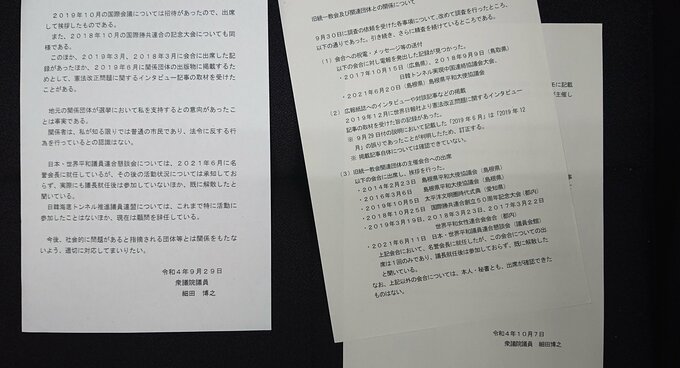 2019年10月の国際会議については招待があったので、出席
して挨拶したものである。
また、2018年10月の国際勝共連合の記念大会についても同
様である。
このほか、2019年3月、2018年3月に会合に出席した記
録があったほか、2019年6月に関係団体の出版物に掲載するた
めとして、憲法改正問題に関するインタビュー記事の取材を受けた
ことがある。
地元の関係団体が選挙において私を支持するとの意向があったこ
とは事実である。
関係者は、私が知る限りでは普通の市民であり、法令に反する行
為を行っているとの認識はない。
日本・世界平和議員連合懇談会については、2021年6月に名
誉会長に就任しているが、その後の活動状況については承知してお
らず、実際にも議長就任後は参加していないほか、既に解散したと
聞いている。
日韓海底トンネル推進議員連盟については、これまで特に活動に
参加したことはないほか、現在は顧問を辞任している。
今後、社会的に問題があると指摘される団体等とは関係をもたな
いよう、適切に対応してまいりたい。
令和4年9月29日
衆議院議員
細田 博之
旧統一教会及び関連団体との関係について
9月30日に調査の依頼を受けた各事項について、改めて調査を行ったところ、
以下の通りであった。引き続き、さらに精査を続けているところである。
(1)会合への祝電・メッセージ等の送付
以下の会合に対し電報を発出した記録が見つかった。
・2017年10月15日(広島県)、2018年9月9日(鳥取県)
日韓トンネル実現中国連絡協議会大会、
・2021年6月20日(島根県)島根県平和大使協議会
(2)広報紙誌へのインタビューや対談記事などの掲載
2019年12月に世界日報社より憲法改正問題に関するインタビュー
記事の取材を受けた旨の記録があった。
※ 9月29日付の説明において記載した「2019年6月」は「2019年12
月」の誤りであったことが判明したため、訂正する。
※ 掲載記事自体については確認できていない。
(3)旧統一教会関連団体の主催会合への出席
以下の会合に出席し、挨拶を行った。
・2014年2月23日 島根県平和大使協議会(島根県)
・2016年3月6日 島根県平和大使協議会(島根県)
・2019年10月5日 太平洋文明圏時代式典(愛知県)
・2018年10月25日 国際勝共連合創立50周年記念大会(都内)
・2019年3月19日、2018年3月23日、2017年3月22日
世界平和女性連合会合(都内)
・2021年6月11日 日本・世界平和議員連合懇談会(議員会館)
上記会合において、名誉会長に就任したが、この会合についての出
席は1回のみであり、議長就任後は参加しておらず、既に解散した
と聞いている。
なお、上記以外の会合については、本人・秘書とも、出席が確認できた
ものはない。
令和4年10月7日
衆議院議員 細田博之